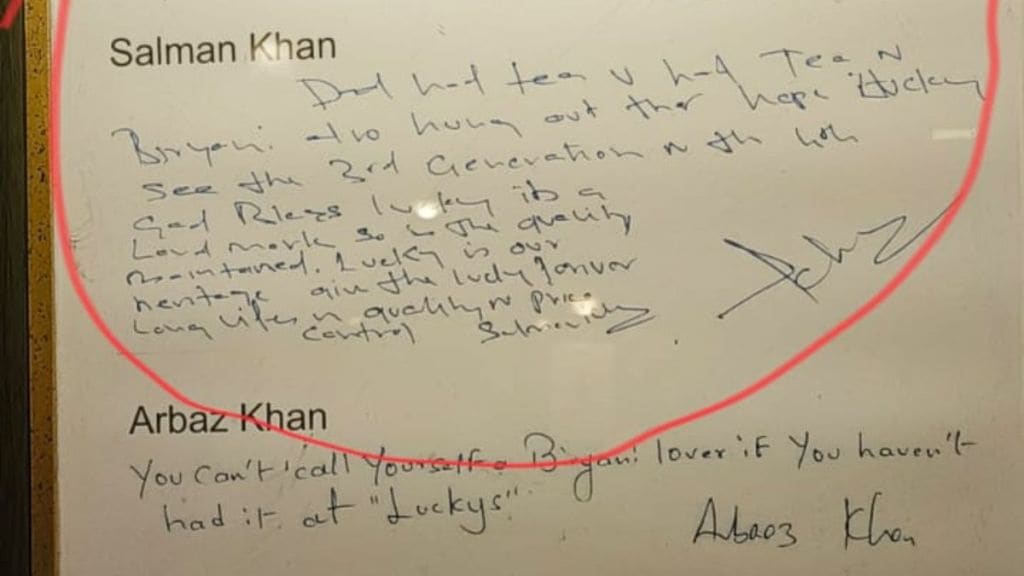 Salman Khan
Dad had tea v had Tea N
Biryani also hung out ther hope
see the 3rd Generation n th
God Bless lucky its a
Land mark so is the quality
maintained. Lucky is our
heritage give the lucky
Long life n quality n price
control
Arbaz Khan
You Can't call Yourself a Biryani lover if You haven't
had it at "Luckys"
Arbaaz Khan